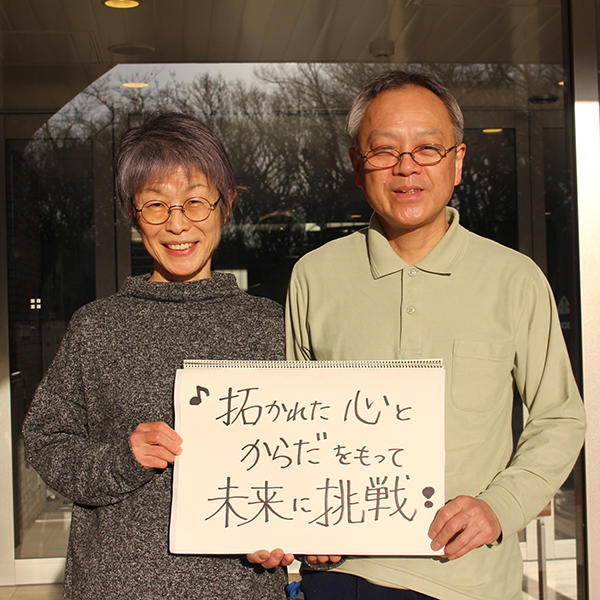 ♪拓かれた心と
からだをもって
未来に挑戦!